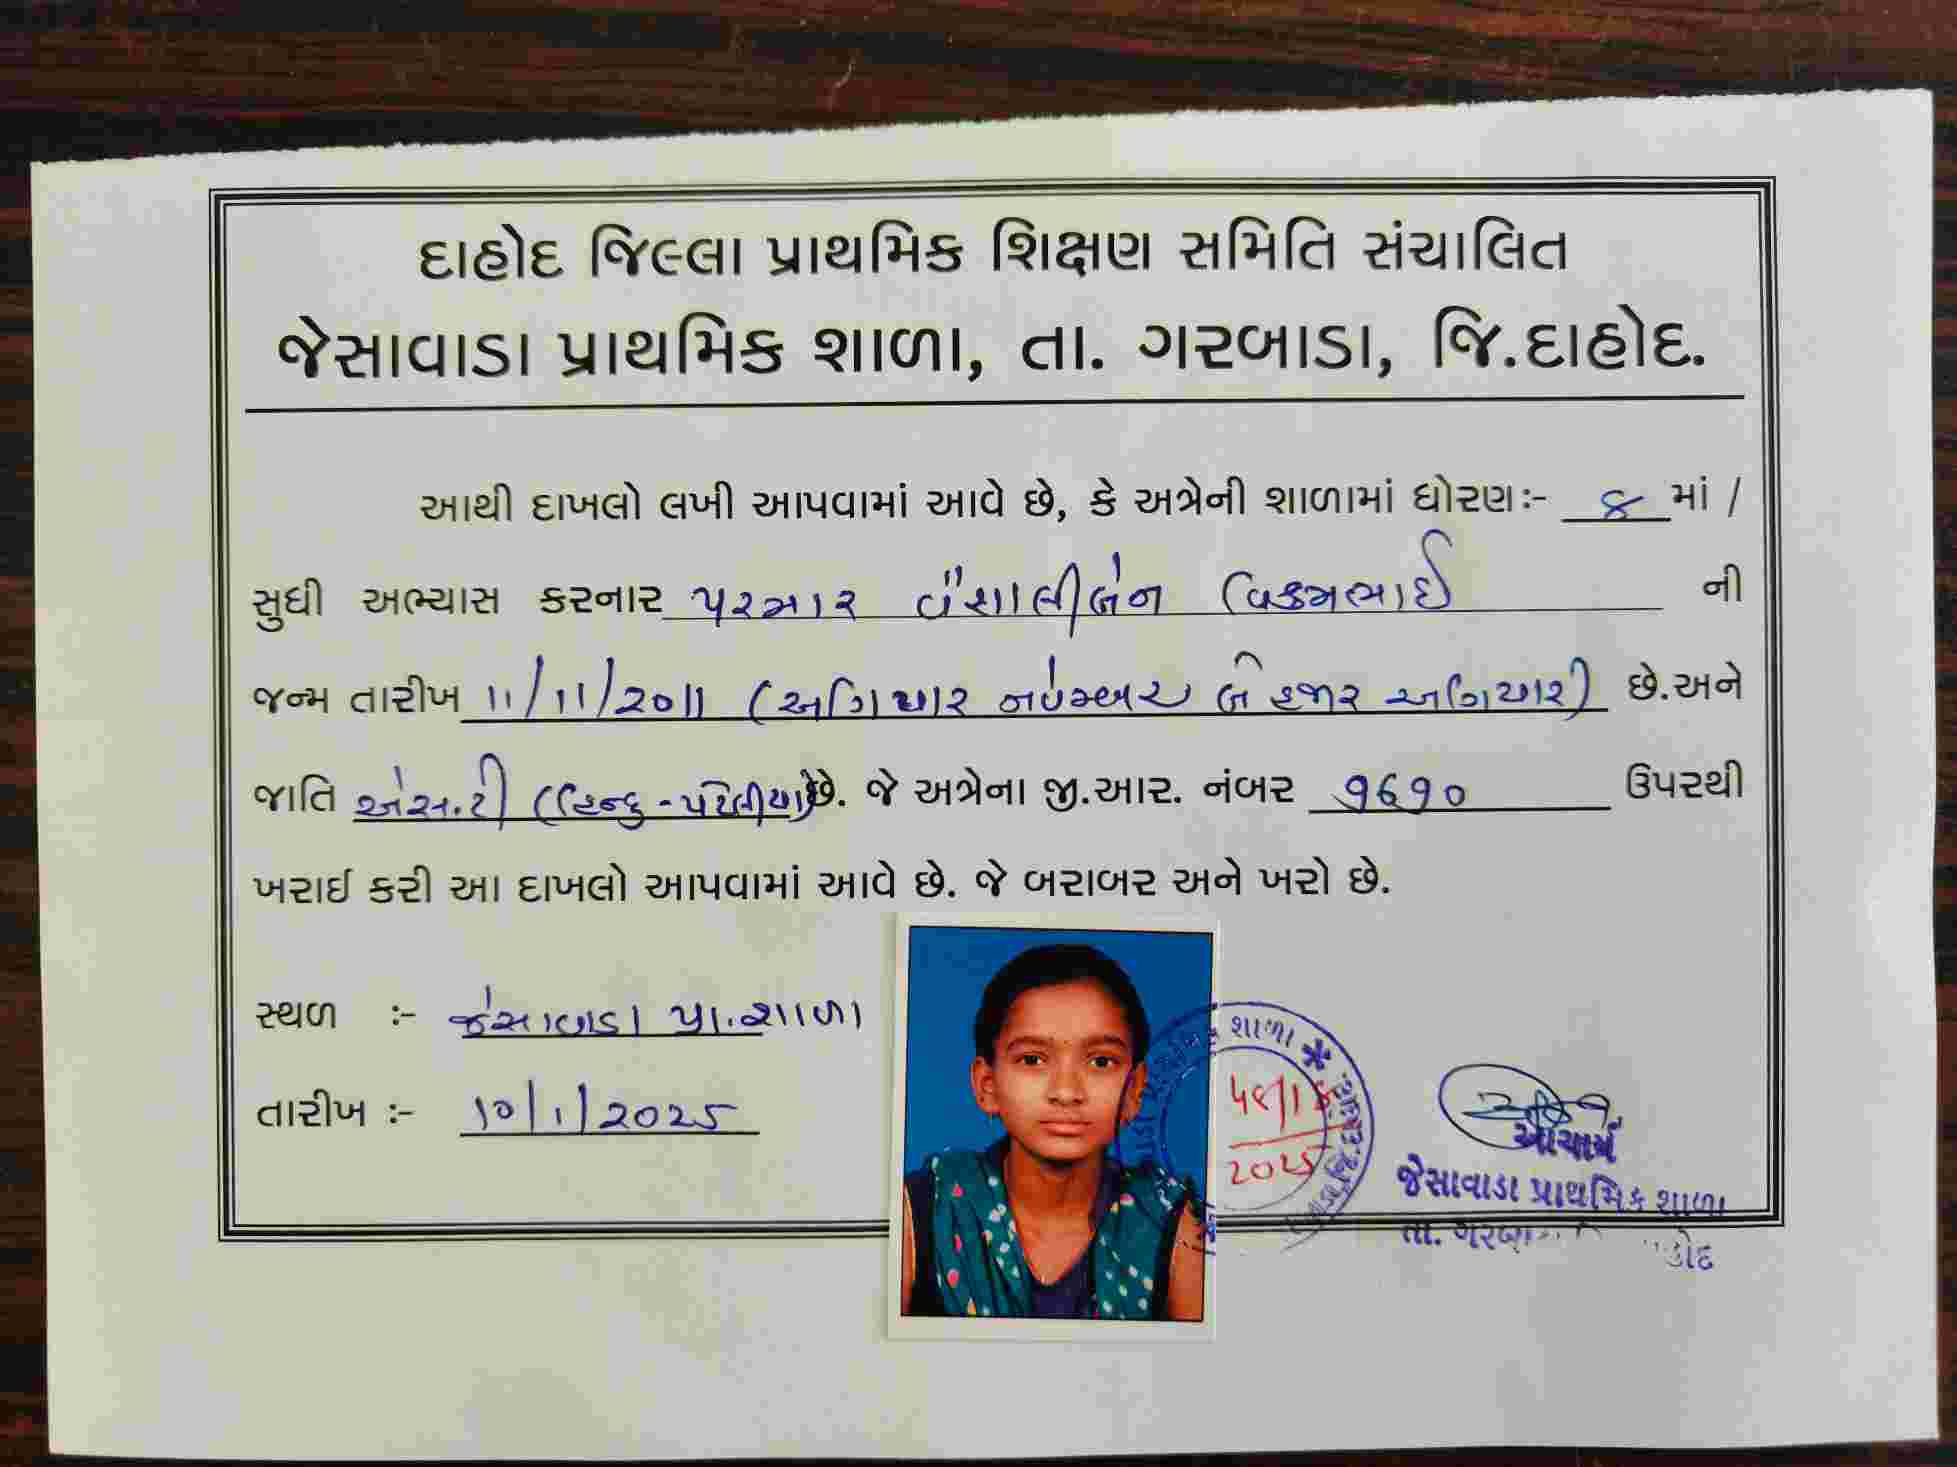 દાહોદ જિલ્લા પ્રાથમિક શિક્ષણ સમિતિ સંચાલિત
જેસાવાડા પ્રાથમિક શાળા, તા. ગરબાડા, જિ.દાહોદ.
આથી દાખલો લખી આપવામાં આવે છે, કે અત્રેની શાળામાં ધોરણઃ- ૪ માં /
સુધી અભ્યાસ કરનાર પરમાર વૈશાલીબેન વિક્રમભાઈ ની
જન્મ તારીખ ૧૧/૧૧/૨૦૧૧ (અગિયાર નવેમ્બર બે હજાર અગિયાર) છે.અને
જાતિ એસ.ટી (હિન્દુ - પટેલીયા) છે. જે અત્રેના જી.આર. નંબર ૧૬૧૦ ઉપરથી
ખરાઈ કરી આ દાખલો આપવામાં આવે છે. જે બરાબર અને ખરો છે.
સ્થળ :- જેસાવાડા પ્રા.શાળા
તારીખ :- ૧૦/૧/૨૦૨૫
શાળા *
૨૦૨૫
આચાર્ય
જેસાવાડા પ્રાથમિક શાળા
તા.